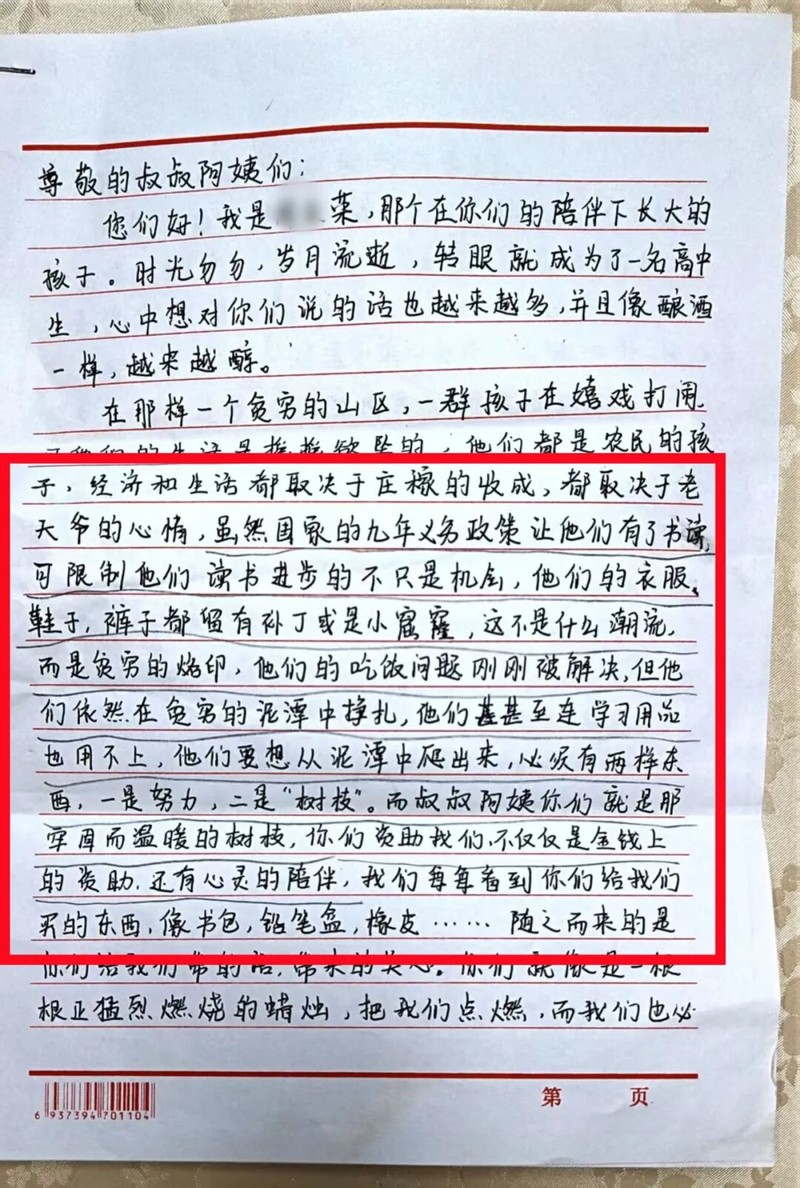 尊敬的叔叔阿姨们:
您们好!我是 荣,那个在你们的陪伴下长大的
孩子。时光匆匆,岁月流逝,转眼就成为了一名高中
生,心中想对你们说的话也越来越多,并且像酿酒
一样,越来越醇。
在那样一个贫穷的山区,一群孩子在嬉戏打闹
们的生活是摇摇欲坠的,他们都是农民的孩
子,经济和生活都取决于庄稼的收成,都取决于老
天爷的心情,虽然国家的九年义务政策让他们有了书读,
可限制他们读书进步的不只是机会,他们的衣服、
鞋子,裤子都留有补丁或是小窟窿,这不是什么潮流,
而是贫穷的烙印,他们的吃饭问题刚刚被解决,但他
们依然在贫穷的泥潭中挣扎,他们甚甚至连学习用品
也用不上,他们要想从泥潭中爬出来,必须有两样东
西,一是努力,二是“树枝”。而叔叔阿姨你们就是那
牢固而温暖的树枝,你们资助我们,不仅仅是金钱上
的资助,还有心灵的陪伴,我们每每看到你们给我们
买的东西,像书包,铅笔盒,橡皮……随之而来的是
你们给我们带的话,带来的关心。你们就像是一根
根正猛烈燃烧的蜡烛,把我们点燃,而我们也必
6937394701104
第 页